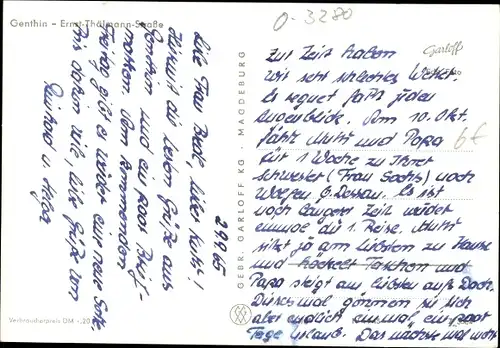 O-3280
Genthin – Ernst-Thälmann-Straße
Garloff
29.9.65
Liebe Frau Beate, lieber Kurt!
Hiermit die besten Grüße aus
Genthin und ein paar Brief-
marken. Am kommenden
Freitag gibt es wieder eine neue Serie.
Bis dahin viele, liebe Grüße von
Reinhard u. Helga
Verbraucherpreis DM -,20
GEBR. GARLOFF KG · MAGDEBURG
Zur Zeit haben
wir sehr schlechtes Wetter.
Es regnet fast jeden
Augenblick. Am 10. Okt.
fährt Mutti und Papa
für 1 Woche zu Ihrer
Schwester (Frau Sachs) nach
Wolfen b. Dessau. Es ist
nach langer Zeit wieder
einmal die 1. Reise. Mutti
sitzt ja am liebsten zu Hause
und häckelt Taschen und
Papa steigt am liebsten aufs Dach.
Diesmal gönnen sie sich
aber endlich einmal ein paar
Tage Urlaub. Das nächste mal mehr
6€